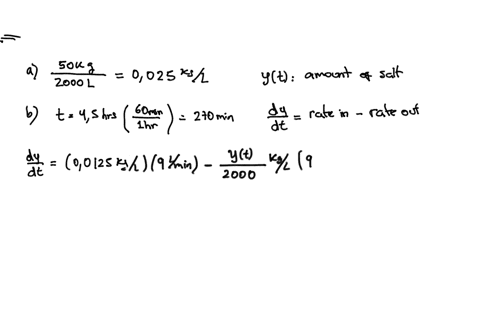 a) 50kg / 2000 L = 0,025 kg/L   y(t): amount of salt
b) t = 4,5 hrs (60min / 1hr) = 270 min   dy/dt = rate in - rate out
dy/dt = (0,0125 kg/L)(9 L/min) - y(t)/2000 kg/L (9